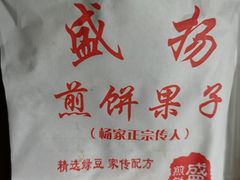 盛扬
煎饼果子
（杨家正宗传人）
精选绿豆 家传配方
盛
煎